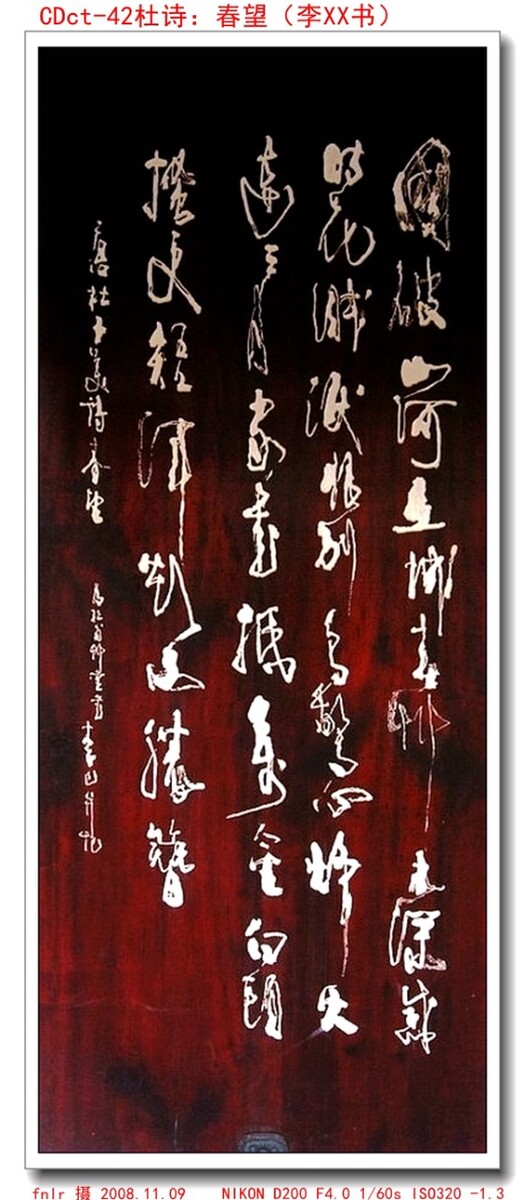 CDct-42杜诗：春望（李XX书）
國破山河在城春艸木深感
時花濺淚恨別鳥驚心烽火
連三月家書抵萬金白頭
搔更短渾欲不勝簪
唐杜子美詩春望
fnlr 摄 2008.11.09 NIKON D200 F4.0 1/60s ISO320 -1.3